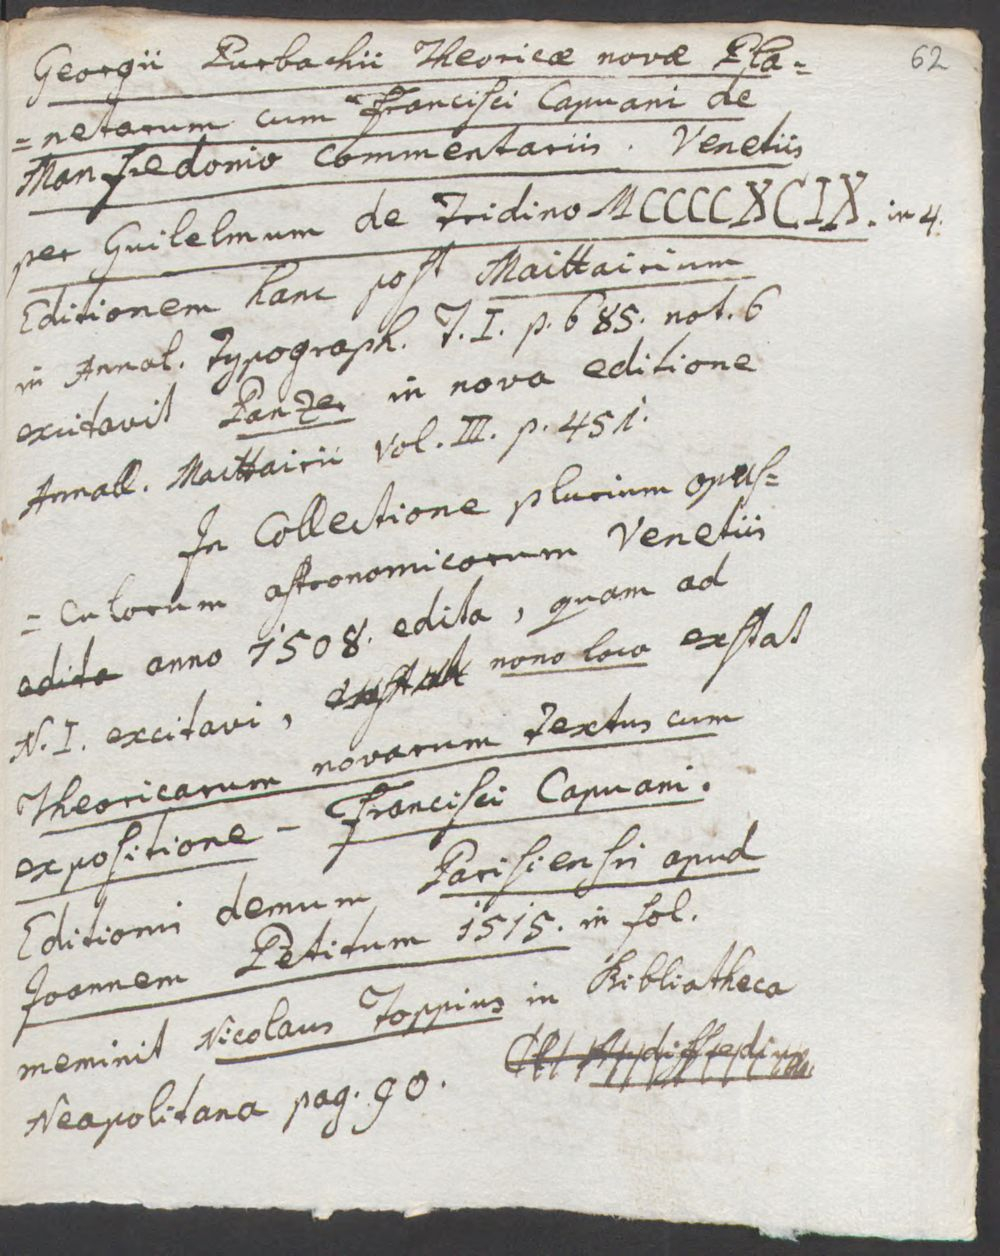 62
Georgii Purbachii Theoricæ novæ Pla=
=netarum cum Francisci Capuani de
Manfredonio commentariis. Venetiis
per Guilelmum de Tridino MCCCCXCIX. in 4.
Editionem hanc post Maittairium
in Annal. Typograph. T. I. p. 685. not. 6
excitavit Panzer in nova editione
Annall. Maittairii Vol. III. p. 451.
In Collectione plurium opus=
=culorum astronomicorum Venetiis
edita anno 1508. edita, quam ad
N. I. excitavi, exstat nono loco exstat
Theoricarum novarum Textus cum
expositione - Francisci Capuani.
Editionis demum Parisiensis apud
Joannem Petitum 1515. in fol.
meminit Nicolaus Toppius in Bibliotheca
Neapolitana pag. 90.